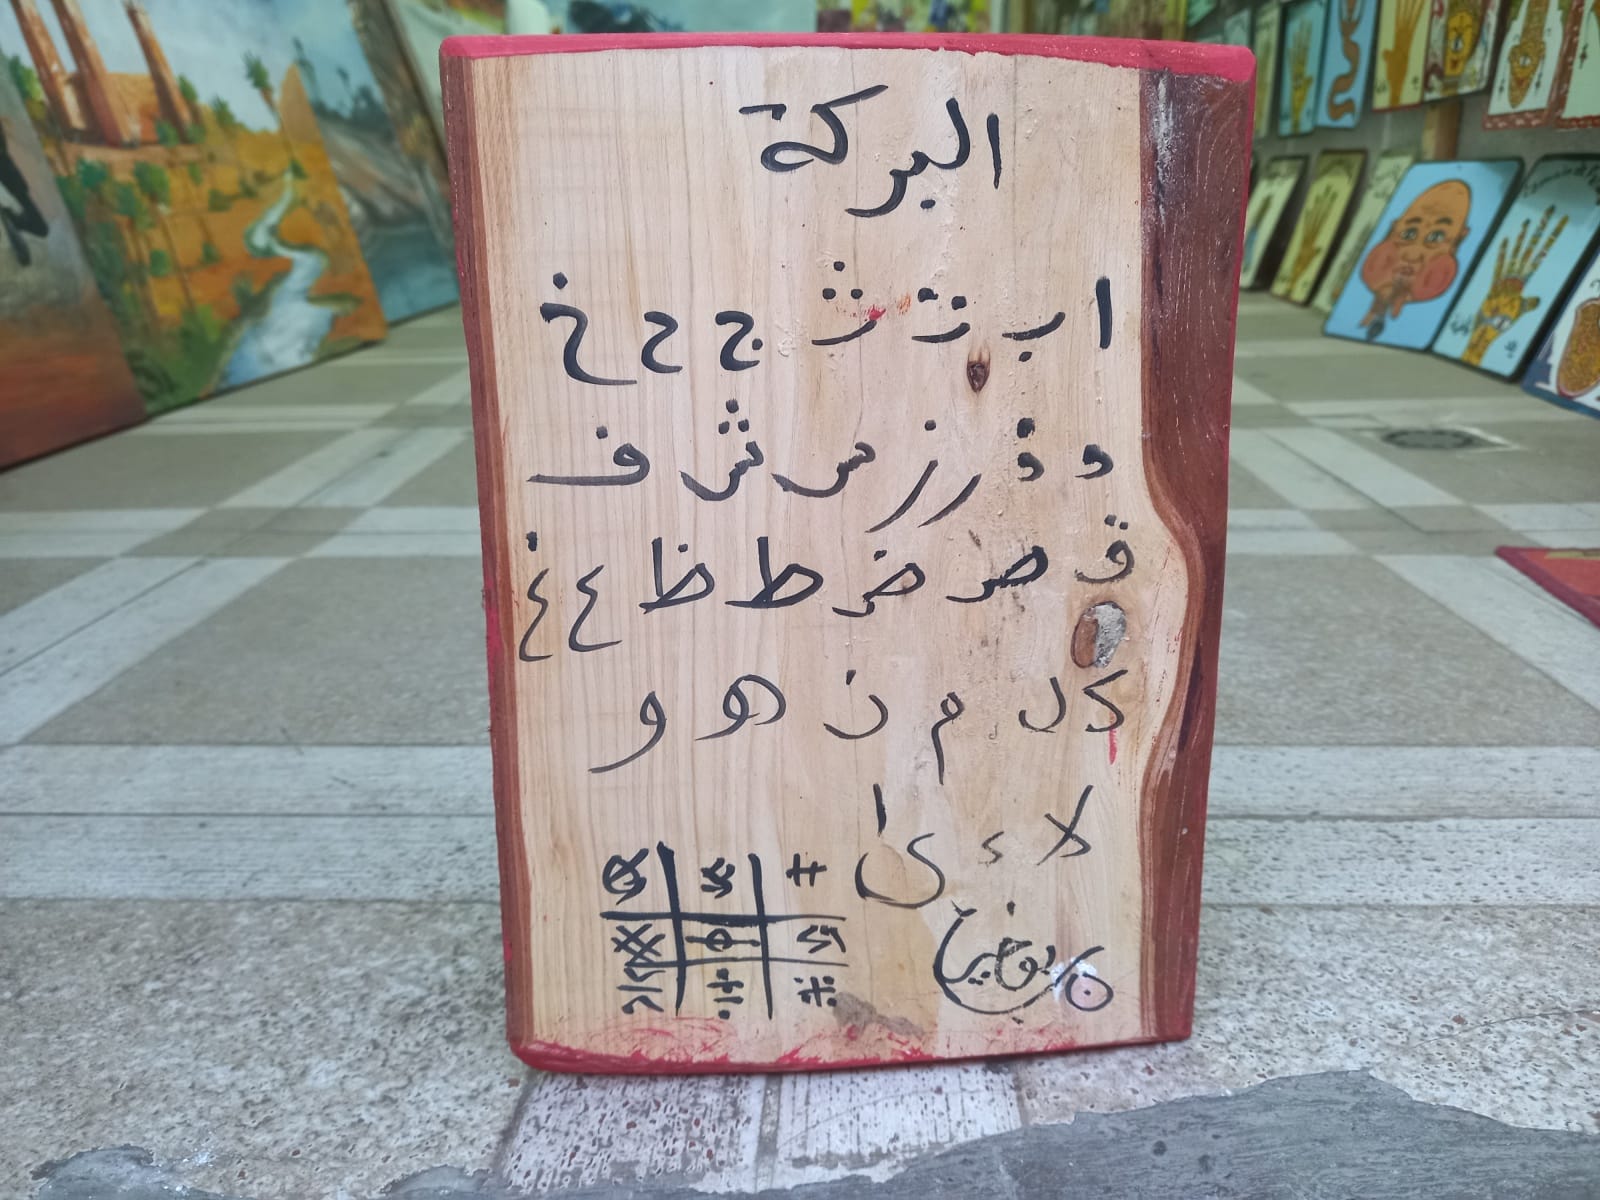 البركة
ا ب ت ث ج ح خ
د ذ ر ز س ش ف
ق ص ض ط ظ ع غ
ك ل م ن ه و
لا ء ى ا